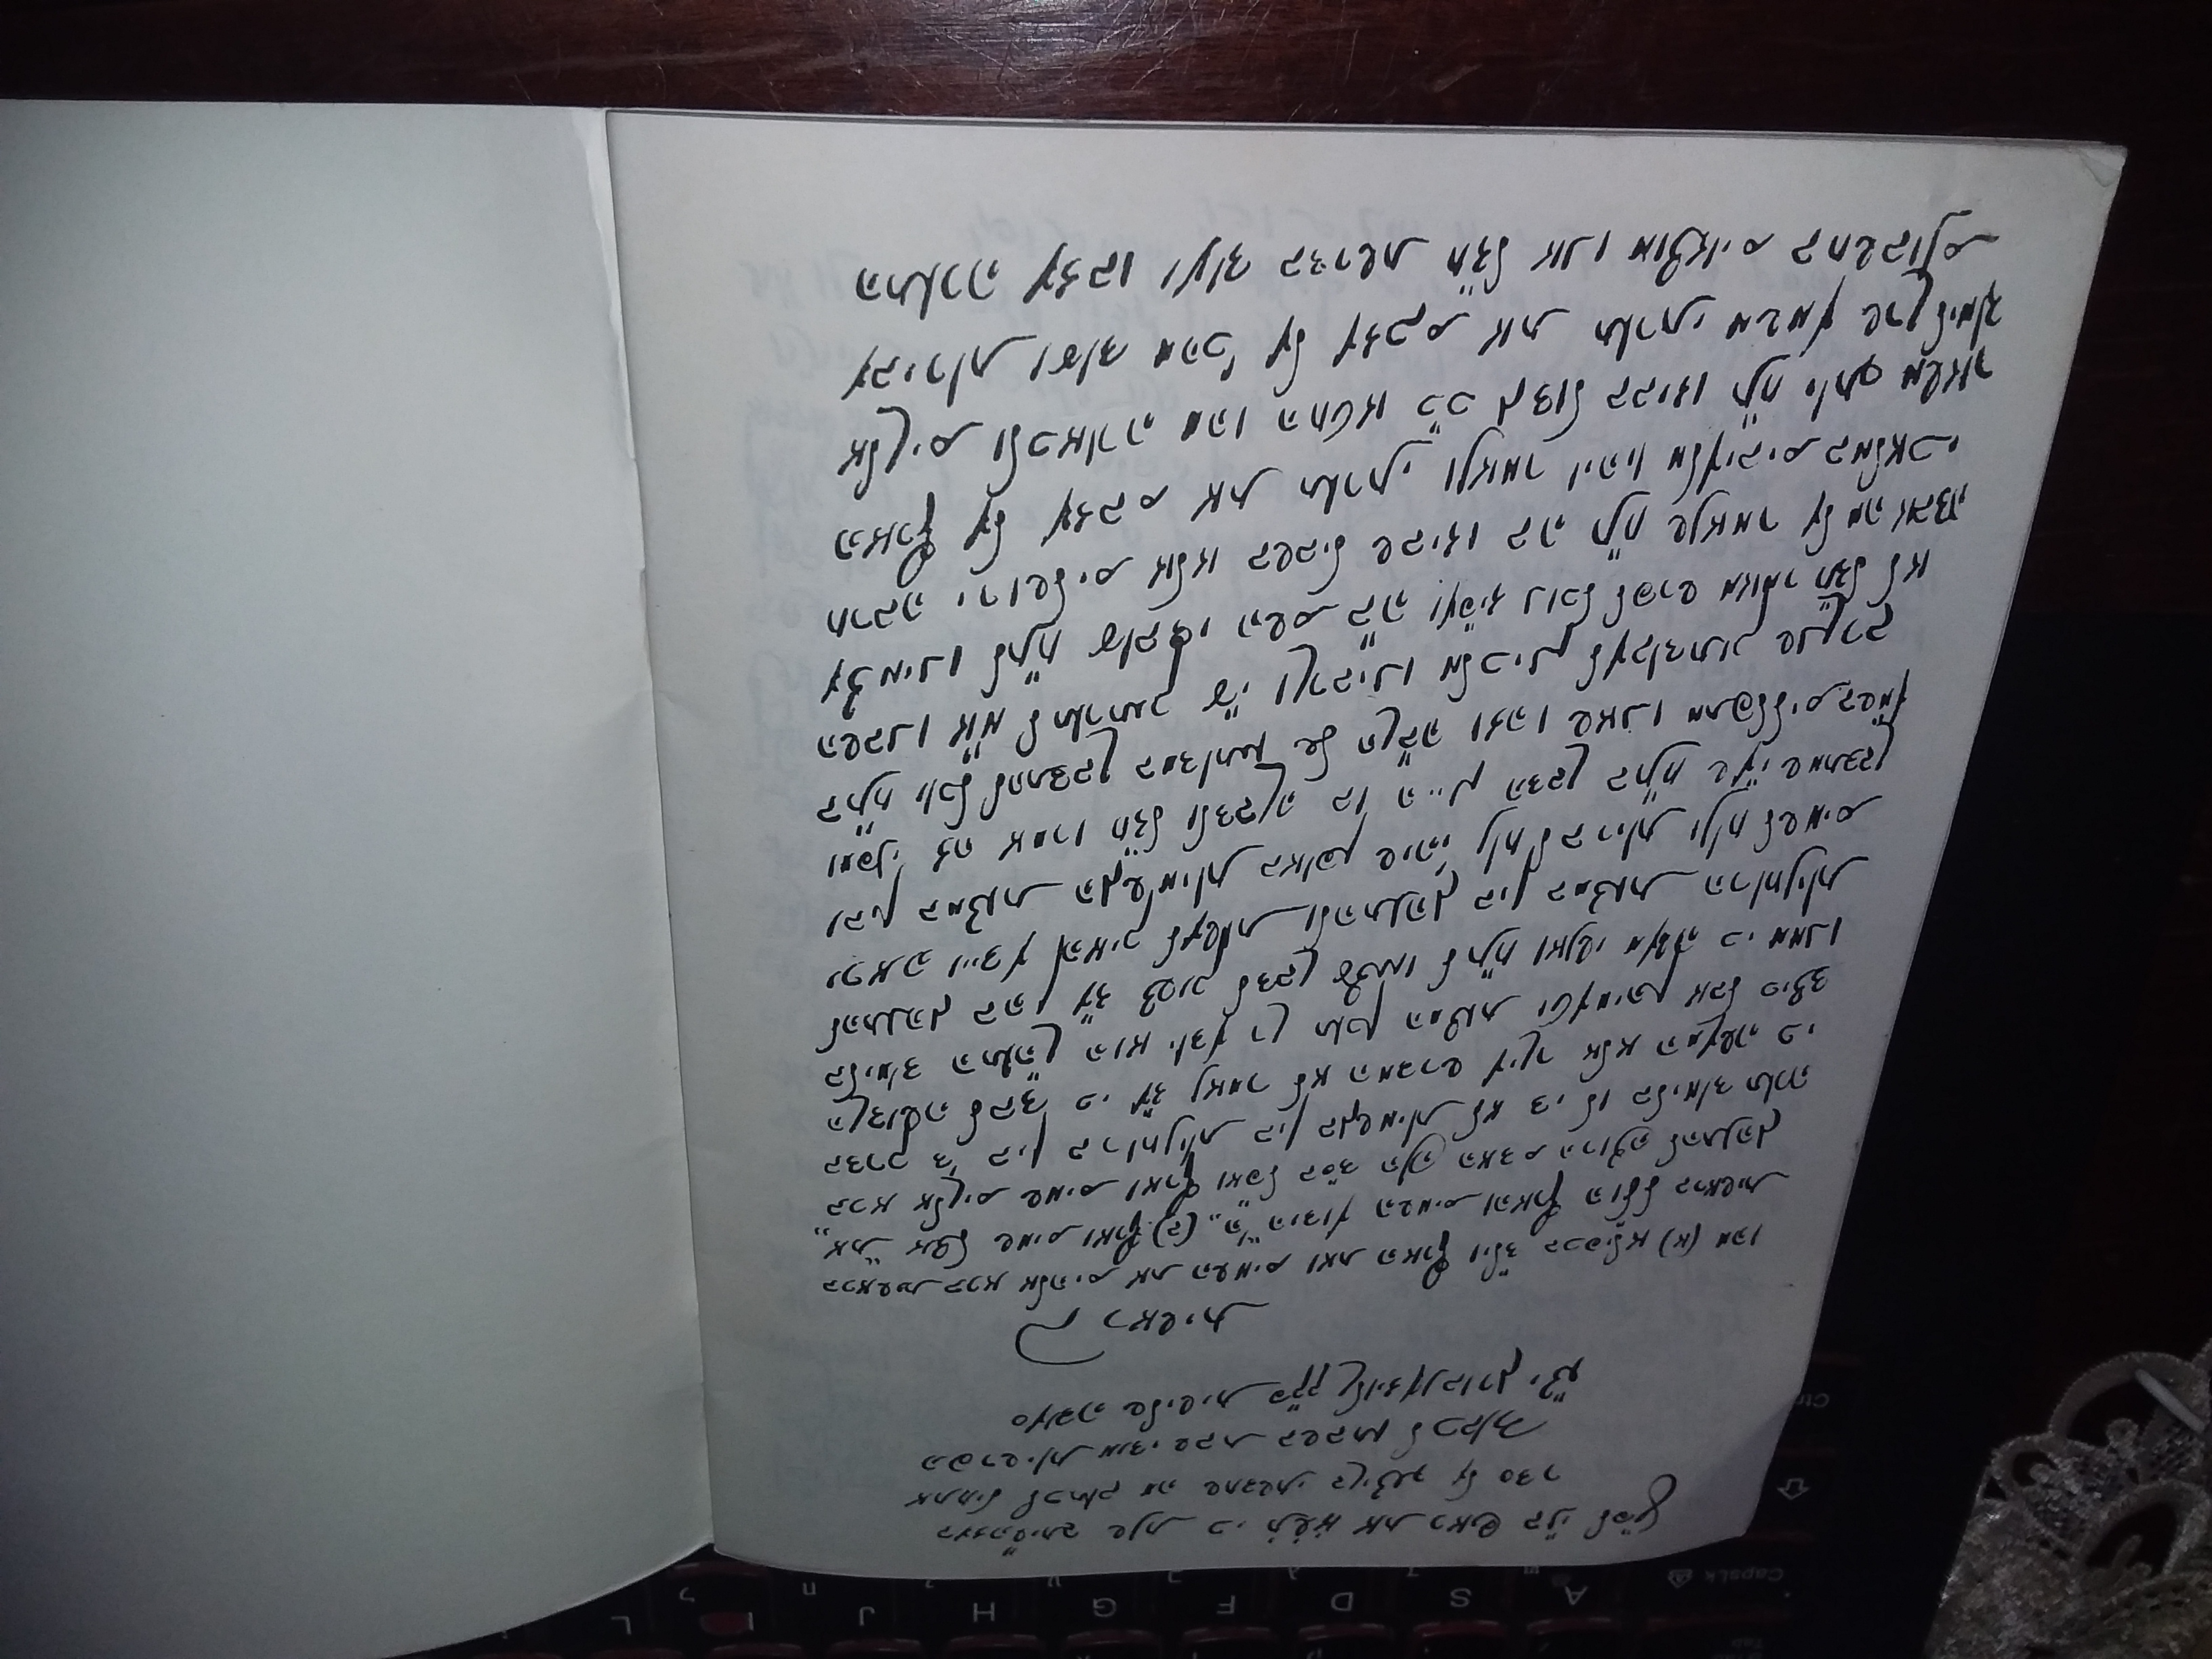 בעזהשי"ת שנת כי תש"א את ראש בני לפ"ק
אתחיל לכתוב מה שחדשתי בקיצור על סדר
הפרשיות מידי שבת בשבתו לכבוד
סעודה שלישית פק"ק קלויזענבורג יצ"ו
בראשית
בראשית ברא אלהים את השמים ואת הארץ וי"לד בכפילא (א) מהו
"את" אצל שמים וארץ (ב) "ה" הידוע השמים והארץ הול"ל בראשית
ברא אלקים שמים וארץ ואפ"ל בס"ד הנה האדם הרוצה להתנהג
בדרך ד' בין ברוחניות בין בגשמיות לא די לו בלימוד תורה
הקדושה לבד כי ע"ז נאמר לא המדרש עיקר אלא המעשה כי
בלימוד התוה"ק הוא יודע רק תוכן המצות וטעמיהן אבל כיצד
להתנהג בהן ע"ז צריך לדבק עצמו לת"ח ואנשי מעלה כי ממנו
יראה ויידע האיך לעשות ולהתנהג בין במצות הרוחניות
ובין במצות הגשמיות באופן שיהי' נוח לבריות ונוח לשמים
ומפני זה אמרו חז"ל ולדבקה בו היינו הדבק בת"ח שע"י שמתדבק
בת"ח יוכל להתדבק במדותיו של הקב"ה וזהו שאנו מתפללים בשמ"ע
השבנו א"א לתורתך ע"י וקרבינו מלכינו לעבודתך שנקרב
עצמינו לת"ח עובדי השם ב"ה ועפי"ז נוכל לפרש מאמר חז"ל לא
חרבה ירושלים אלא בשביל שביזו בה ת"ח שנאמר על מה אבדה
הארץ על עזבם את תורתי ונאמר ויהיו מלעיבים במלאכי
אלקים ולכאורה מהו החטא כ"כ גדול בביזו ת"ח יותר משאר
עבירות ועוד מהכ' על עזבם את תורתי משמע שרק לימוד
התורה עזבו ועוד בדרשת חז"ל אנו מוצאים בחשבונם